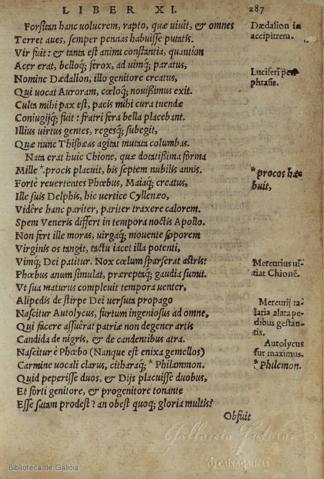 LIBER XI. 287
Forsitan hanc uolucrem, rapto, quæ uiuit, & omnes
Terret aues, semper pennas habuisse putatis.
Vir fuit: & tanta est animi constantia, quantum
Acer erat, belloq́; ferox, ad uimq́; paratus,
Nomine Dædalion, illo genitore creatus,
Qui uocat Auroram, cœloq́; nouißimus exit.
Culta mihi pax est, pacis mihi cura tuendæ
Coniugijq́; fuit: fratri fera bella placebant.
Illius uirtus gentes, regesq́; subegit,
Quæ nunc Thisbæas agitat mutata columbas.
Nata erat huic Chione, quæ dotatißima forma
Mille *procos placuit, bis septem nubilis annis.
Forte reuertentes Phœbus, Maiaq́; creatus,
Ille suis Delphis, hic uertice Cyllenæo,
Vidêre hanc pariter, pariter traxere calorem.
Spem Veneris differt in tempora noctis Apollo.
Non fert ille moras, uirgaq́; mouente soporem
Virginis os tangit, tactu iacet illa potenti,
Vimq́; Dei patitur. Nox cœlum sparserat astris:
Phœbus anum simulat, præreptaq́; gaudia sumit.
Vt sua maturus compleuit tempora uenter,
Alipedis de stirpe Dei uersuta propago
Nascitur Autolycus, furtum ingeniosus ad omne,
Qui facere assuêrat patriæ non degener artis
Candida de nigris, & de candentibus atra.
Nascitur è Phœbo (Nanque est enixa gemellos)
Carmine uocali clarus, citharaq́; *Philammon.
Quid peperisse duos, & Dijs placuisse duobus,
Et forti genitore, & progenitore tonante
Esse satam prodest? an obest quoq; gloria multis?
Obfuit
Dædalion in
accipitrem.
Luciferi peri
phrasis.
*procos ha
buit,
Mercurius ui
tiat Chionẽ.
Mercurij ta-
laria alata pe-
dibus gestan-
tis.
Autolycus
fur maximus.
*Philemon.
Biblioteca de Galicia